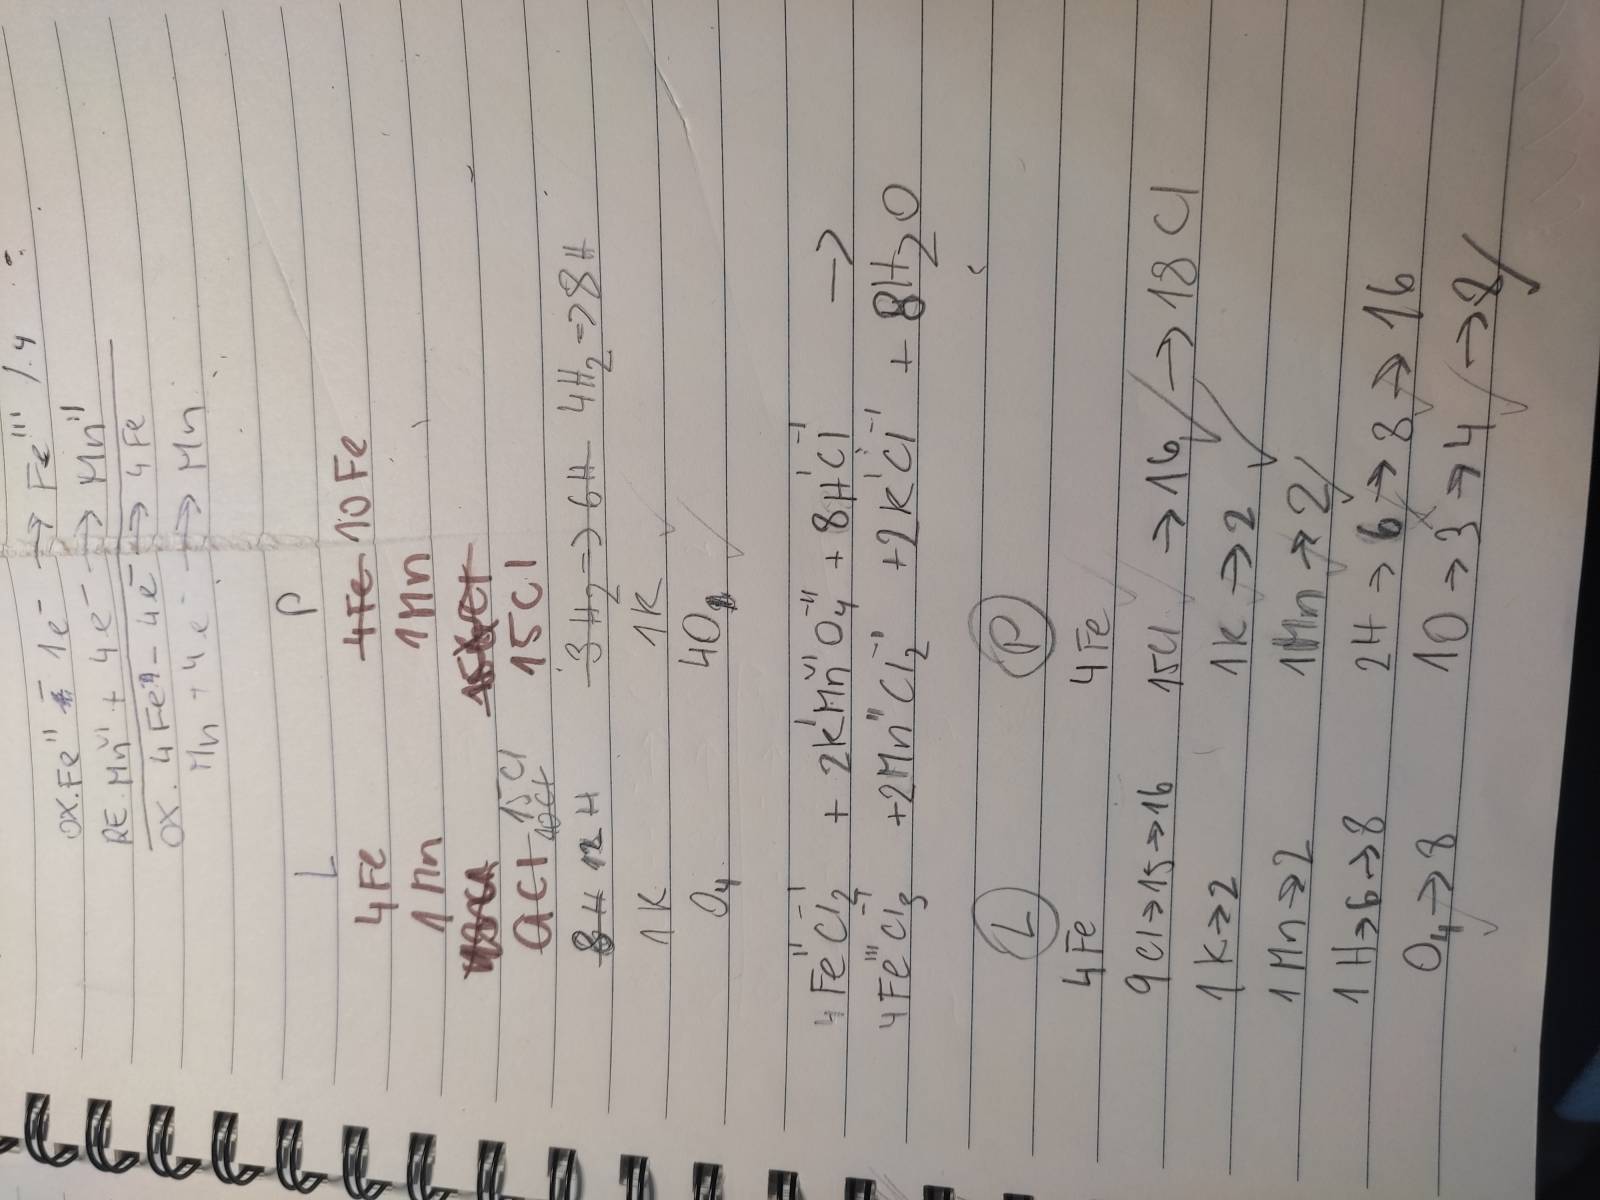 OX. Fe'' - 1e⁻ → Fe''' /.4
RE. Mn^VI + 4e⁻ → Mn''
OX. 4Fe'' - 4e⁻ → 4Fe
Mn + 4e⁻ → Mn
L P
4Fe 4Fe 10Fe
1Mn 1Mn
9Cl 10Cl 15Cl 15Cl
8H 12H 3H₂ => 6H 4H₂ => 8H
1K 1K
O₄ 4O
4Fe^IICl₂^-I + 2K^IMn^VIO₄^-II + 8H^ICl^-I →
4Fe^IIICl₃^-I + 2Mn^IICl₂^-I + 2K^ICl^-I + 8H₂O
L P
4Fe 4Fe
9Cl → 15 → 16 15Cl → 16 → 18Cl
1K → 2 1K → 2
1Mn → 2 1Mn → 2
1H → 6 → 8 2H → 6 → 8 → 16
O₄ → 8 1O → 3 → 4 → 8